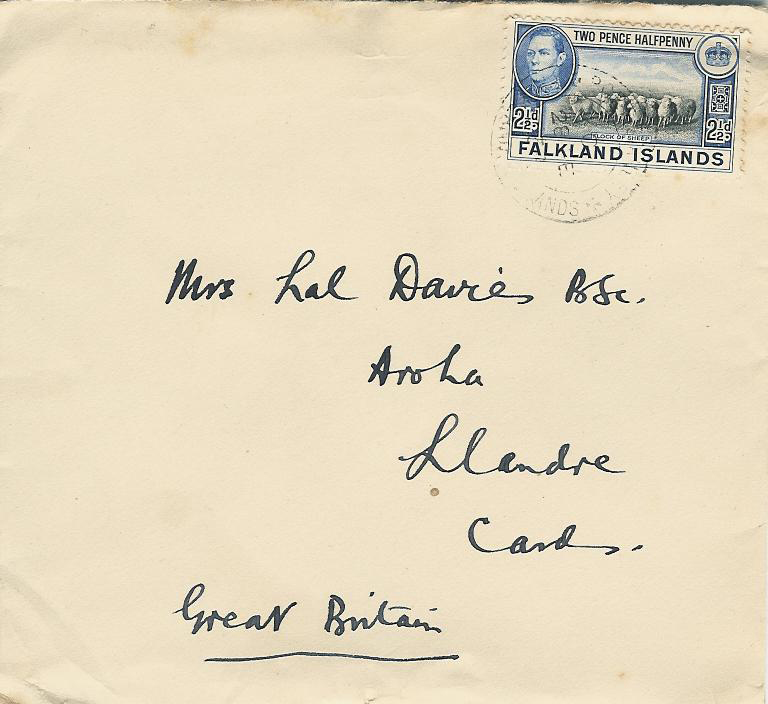 TWO PENCE HALFPENNY
2½D 2½D
FLOCK OF SHEEP
FALKLAND ISLANDS
Mrs Lal Davies BSc.
Aroha
Llandre
Cards.
Great Britain